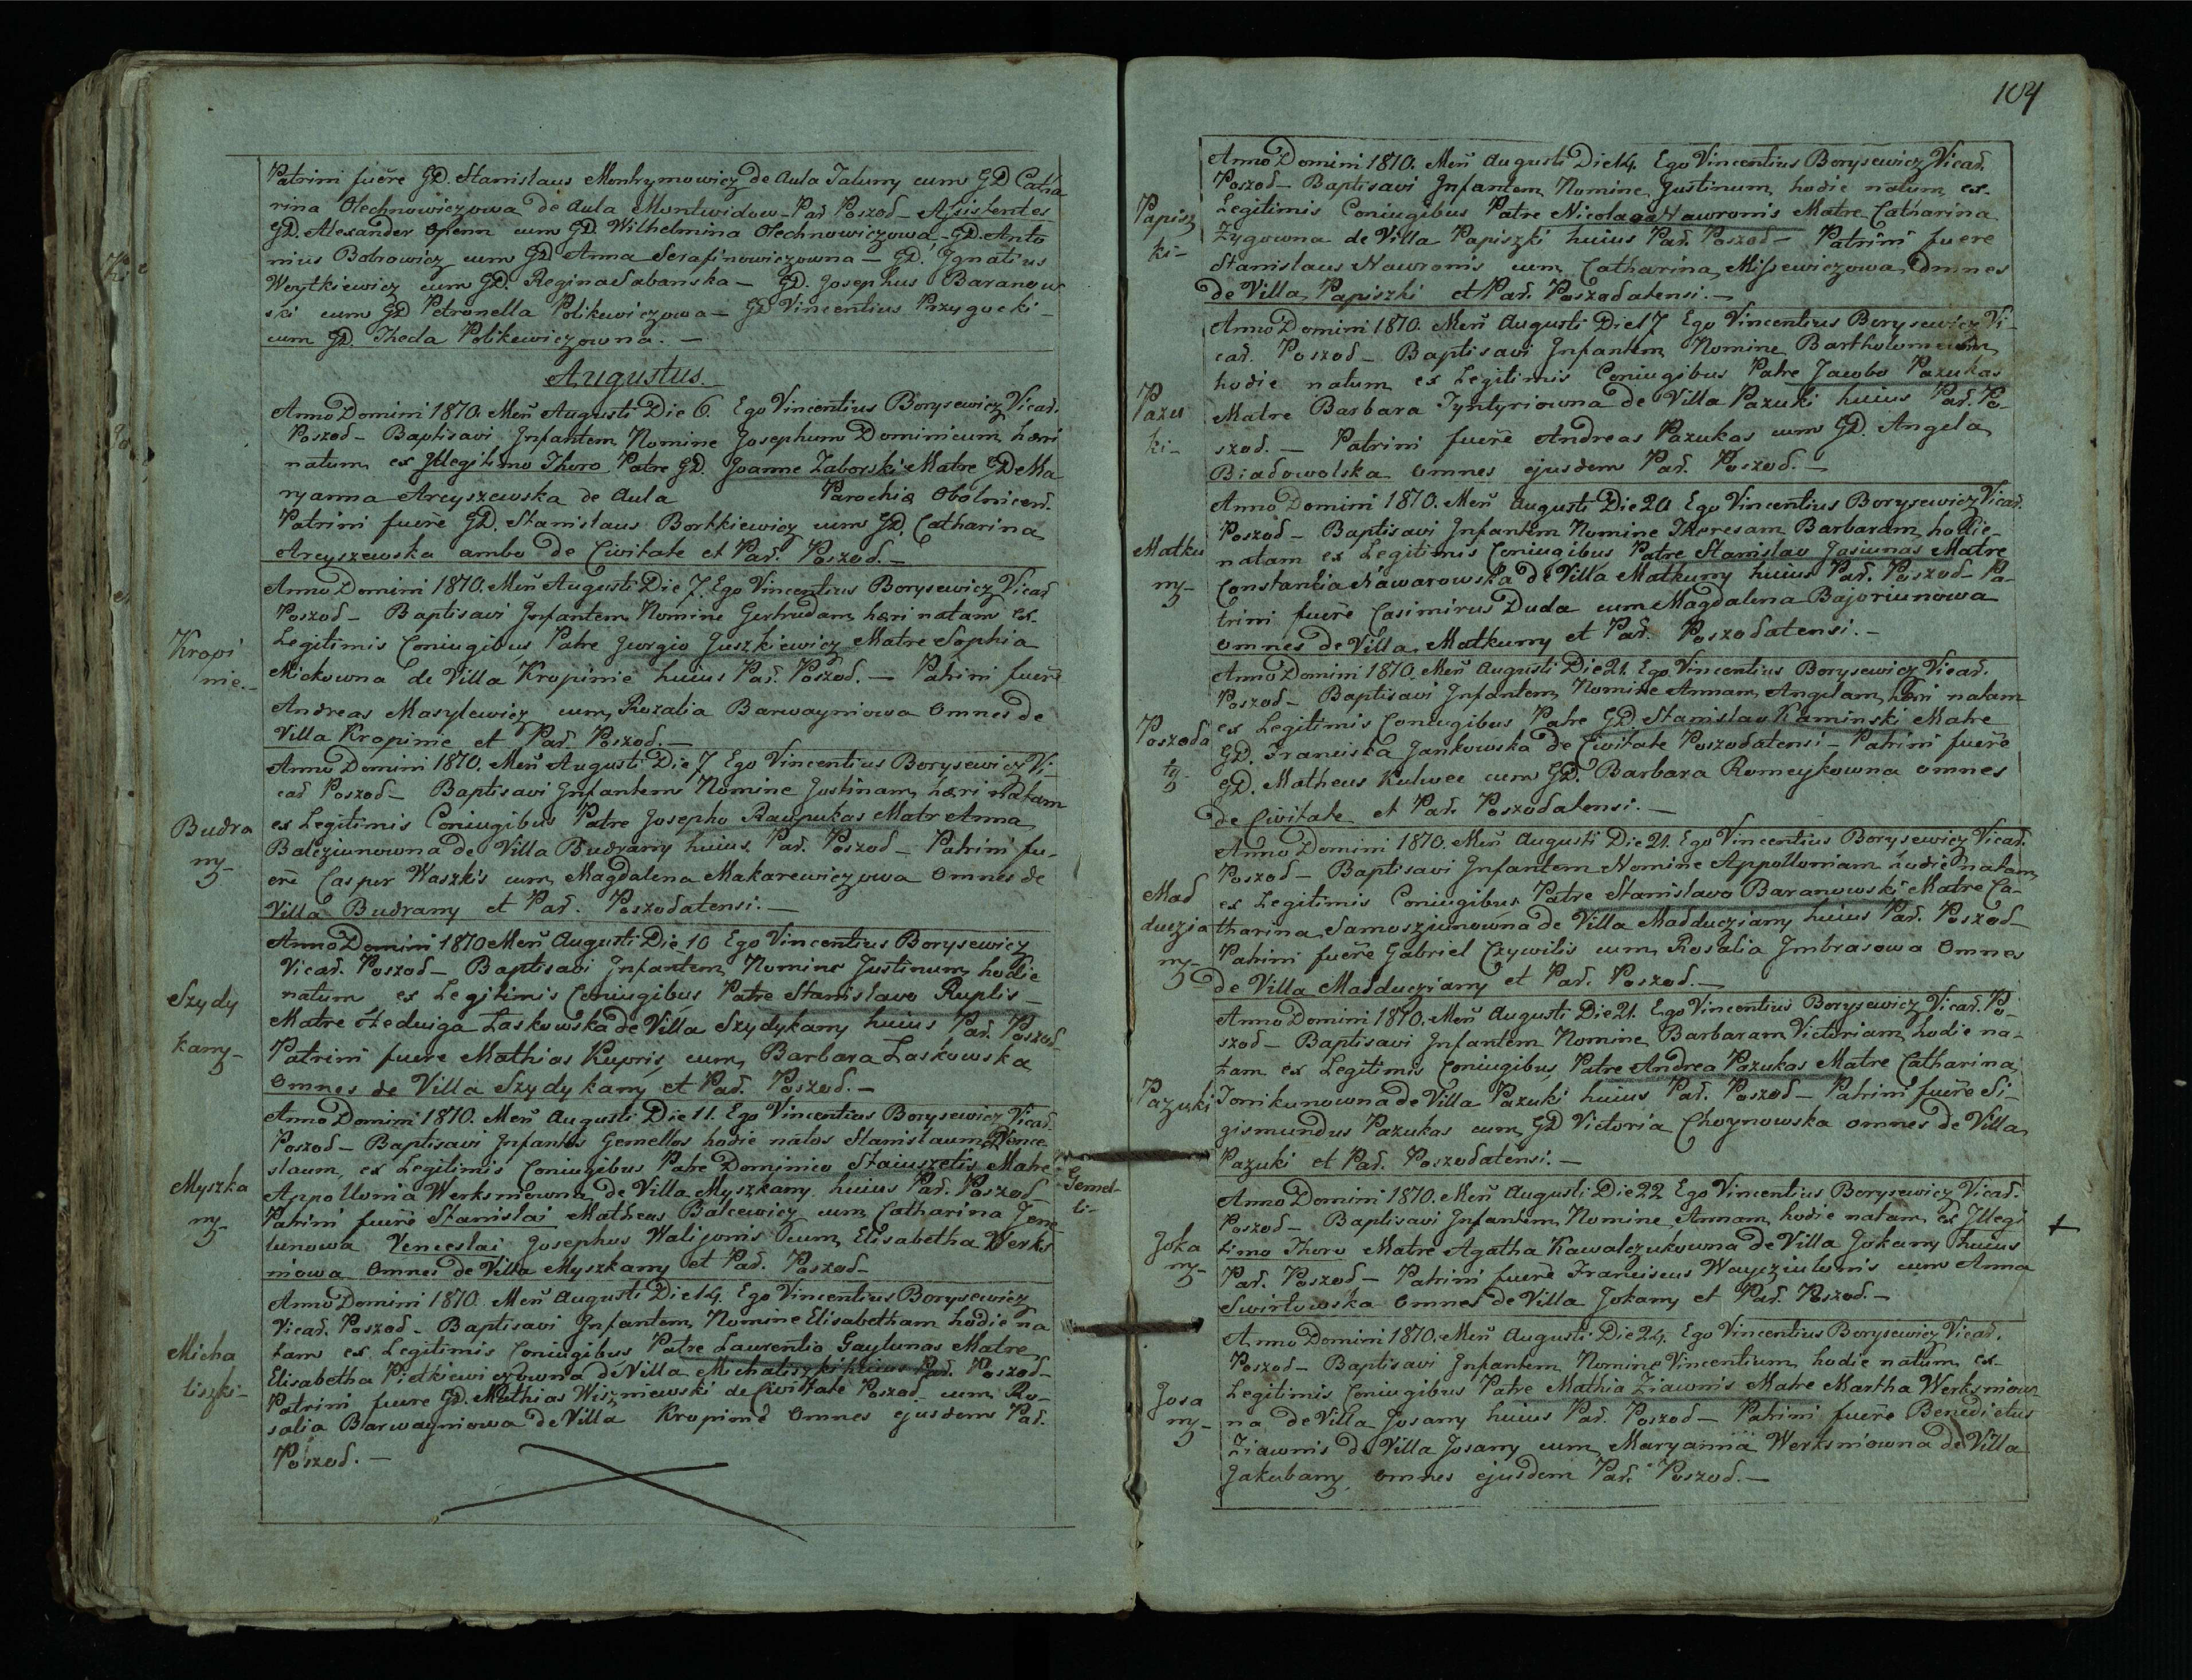 Patrini fuēre GD. Stanislaus Montrymowicz de Aula Talumy cum GD Catha
rina Olechnowiczowa de Aula Montwidow Par Poszod – Assistentes
GD. Alexander Openn cum GD. Wilhelmina Olechnowiczowa – GD. Anto
nius Bobrowicz cum GD Anna Serafinowiczowna – GD. Ignatius
Woytkiewicz cum GD. Regina Sabanska – GD. Josephus Baranow
ski cum GD Petronella Polikewiczowa – GD Vincentius Przygocki –
cum GD. Theda Polikewiczowna. –
Augustus.
Anno Domini 1870. Men Augusti Die 6. Ego Vincentius Borysewicz Vicar.
Poszod – Baptisavi Infantem Nomine Josephum Dominicum hæri
natum ex Illegitimo Thoro Patre GD. Joanne Zaborski Matre GD Ma
ryanna Arcyszewska de Aula Parochiæ Obolnicen.
Patrini fuēre GD. Stanislaus Bortkiewicz cum GD. Catharina
Arcyszewska ambo de Civitate et Par. Poszod. –
Kropi
nie. –
Anno Domini 1870. Men Augusti Die 7. Ego Vincentius Borysewicz Vicar
Poszod – Baptisavi Infantem Nomine Gertrudam hæri natam ex
Legitimis Coniugibus Patre Georgio Juszkiewicz Matre Sophia
Mickowna de Villa Kropinie huius Par. Poszod. – Patrini fuēre
Andreas Masylewicz cum Rozalia Barwayniowa Omnes de
Villa Kropinie et Par. Poszod. –
Budra
ny –
Anno Domini 1870. Men Augusti Die 7 Ego Vincentius Borysewicz Vi-
car Poszod – Baptisavi Infantem Nomine Justinam hæri natam
ex Legitimis Coniugibus Patre Josepho Raupukas Matr Anna
Balcziunowna de Villa Budrany huius Par. Poszod – Patrini fu-
ere Casper Waszkis cum Magdalena Makarewiczowa Omnes de
Villa Budrany et Par. Poszodatensi. –
Szydy
kany –
Anno Domini 1870 Men Augusti Die 10 Ego Vincentius Borysewicz
Vicar. Poszod – Baptisavi Infantem Nomine Justinum hodie
natum ex Legitimis Coniugibus Patre Stanislavo Ruplis –
Matre Hedviga Laskowska de Villa Szydykany huius Par. Poszod
Patrini fuere Mathias Kupris cum Barbara Laskowska
Omnes de Villa Szydykany et Par. Poszod. –
Myszka
ny –
Anno Domini 1870. Men Augusti Die 11. Ego Vincentius Borysewicz Vicar.
Poszod – Baptisavi Infantes Gemellos hodie natos Stanislaum & Vence
slaum ex Legitimis Coniugibus Patre Dominico Staiuszetis Matre
Appollonia Werksniowna de Villa Myszkany huius Par. Poszod –
Patrini fuēre Stanislai Matheus Balcewicz cum Catharina Jone
lunowa Venceslai Josephus Walijonis cum Elisabetha Werks
niowa Omnes de Villa Myszkany et Par. Poszod –
Gemel-
li –
Micha
liszki –
Anno Domini 1870. Men Augusti Die 14. Ego Vincentius Borysewicz
Vicar. Poszod – Baptisavi Infantem Nomine Elisabetham hodie na
tam ex Legitimis Coniugibus Patre Laurentio Gaylunas Matre
Elisabetha Pietkiewiczowna de Villa Michaliszki huius Par. Poszod –
Patrini fuere GD. Mathias Wiszniewski de Civitate Poszod cum Ro-
salia Barwayniowa de Villa Kropinie Omnes ejusdem Par.
Poszod. –
104
Papisz
ki –
Anno Domini 1870. Men Augusti Die 14. Ego Vincentius Borysewicz Vicar.
Poszod – Baptisavi Infantem Nomine Justinum hodie natum ex
Legitimis Coniugibus Patre Nicolao Nawronis Matre Catharina
Zygowna de Villa Papiszki huius Par. Poszod – Patrini fuere
Stanislaus Nawronis cum Catharina Missewiczowa Omnes
de Villa Papiszki et Par. Poszodatensi. –
Pazu
ki –
Anno Domini 1870. Men Augusti Die 17 Ego Vincentius Borysewicz Vi-
car. Poszod – Baptisavi Infantem Nomine Bartholomeum
hodie natum ex Legitimis Coniugibus Patre Jacobo Pazukas
Matre Barbara Tyntyriowna de Villa Pazuki huius Par. Po-
szod. – Patrini fuēre Andreas Pazukas cum GD. Angela
Biadowolska omnes ejusdem Par. Poszod. –
Matku
ny –
Anno Domini 1870. Men Augusti Die 20 Ego Vincentius Borysewicz Vicar.
Poszod – Baptisavi Infantem Nomine Theresam Barbaram hodie
natam ex Legitimis Coniugibus Patre Stanislao Jasiunas Matre
Constantia Nawarowska de Villa Matkuny huius Par. Poszod – Pa-
trini fuēre Casimirus Duda cum Magdalena Bajoriunowa
omnes de Villa Matkuny et Par. Poszodatensi. –
Poszoda
ty –
Anno Domini 1870. Men Augusti Die 21. Ego Vincentius Borysewicz Vicar.
Poszod – Baptisavi Infantem Nomine Annam Angelam hæri natam
ex Legitimis Coniugibus Patre GD Stanislao Kaminski Matre
GD. Franciska Jankowska de Civitate Poszodatensi – Patrini fuēre
GD. Matheus Kulwec cum GD. Barbara Romeykowna omnes
de Civitate et Par. Poszodatensi. –
Mad
duczia
ny –
Anno Domini 1870. Men Augusti Die 21. Ego Vincentius Borysewicz Vicar.
Poszod – Baptisavi Infantem Nomine Appolloniam hodie natam
ex Legitimis Coniugibus Patre Stanislavo Baranowski Matre Ca-
tharina Samosziunowna de Villa Madducziany huius Par. Poszod –
Patrini fuēre Gabriel Czywilis cum Rosalia Imbrasowa Omnes
de Villa Madducziany et Par. Poszod. –
Pazuki
Anno Domini 1870. Men Augusti Die 21. Ego Vincentius Borysewicz Vicar. Po-
szod – Baptisavi Infantem Nomine Barbaram Victoriam hodie na-
tam ex Legitimis Coniugibus Patre Andrea Pazukas Matre Catharina
Jonikunowna de Villa Pazuki huius Par. Poszod – Patrini fuēre Si-
gismundus Pazukas cum GD Victoria Choynowska omnes de Villa
Pazuki et Par. Poszodatensi. –
Joka
ny –
Anno Domini 1870. Men Augusti Die 22 Ego Vincentius Borysewicz Vicar.
Poszod – Baptisavi Infantem Nomine Annam hodie natam ex Illegi
timo Thoro Matre Agatha Kawalczukowna de Villa Jokany huius
Par. Poszod – Patrini fuēre Franciscus Wayciulonis cum Anna
Swirtowska omnes de Villa Jokany et Par. Poszod. –
Josa
ny –
Anno Domini 1870. Men Augusti Die 24. Ego Vincentius Borysewicz Vicar.
Poszod – Baptisavi Infantem Nomine Vincentium hodie natum ex
Legitimis Coniugibus Patre Mathia Ziawnis Matre Martha Werksniow
na de Villa Josany huius Par. Poszod – Patrini fuēre Benedictus
Ziawnis de Villa Josany cum Maryanna Werksniowna de Villa
Jakubany omnes ejusdem Par. Poszod. –